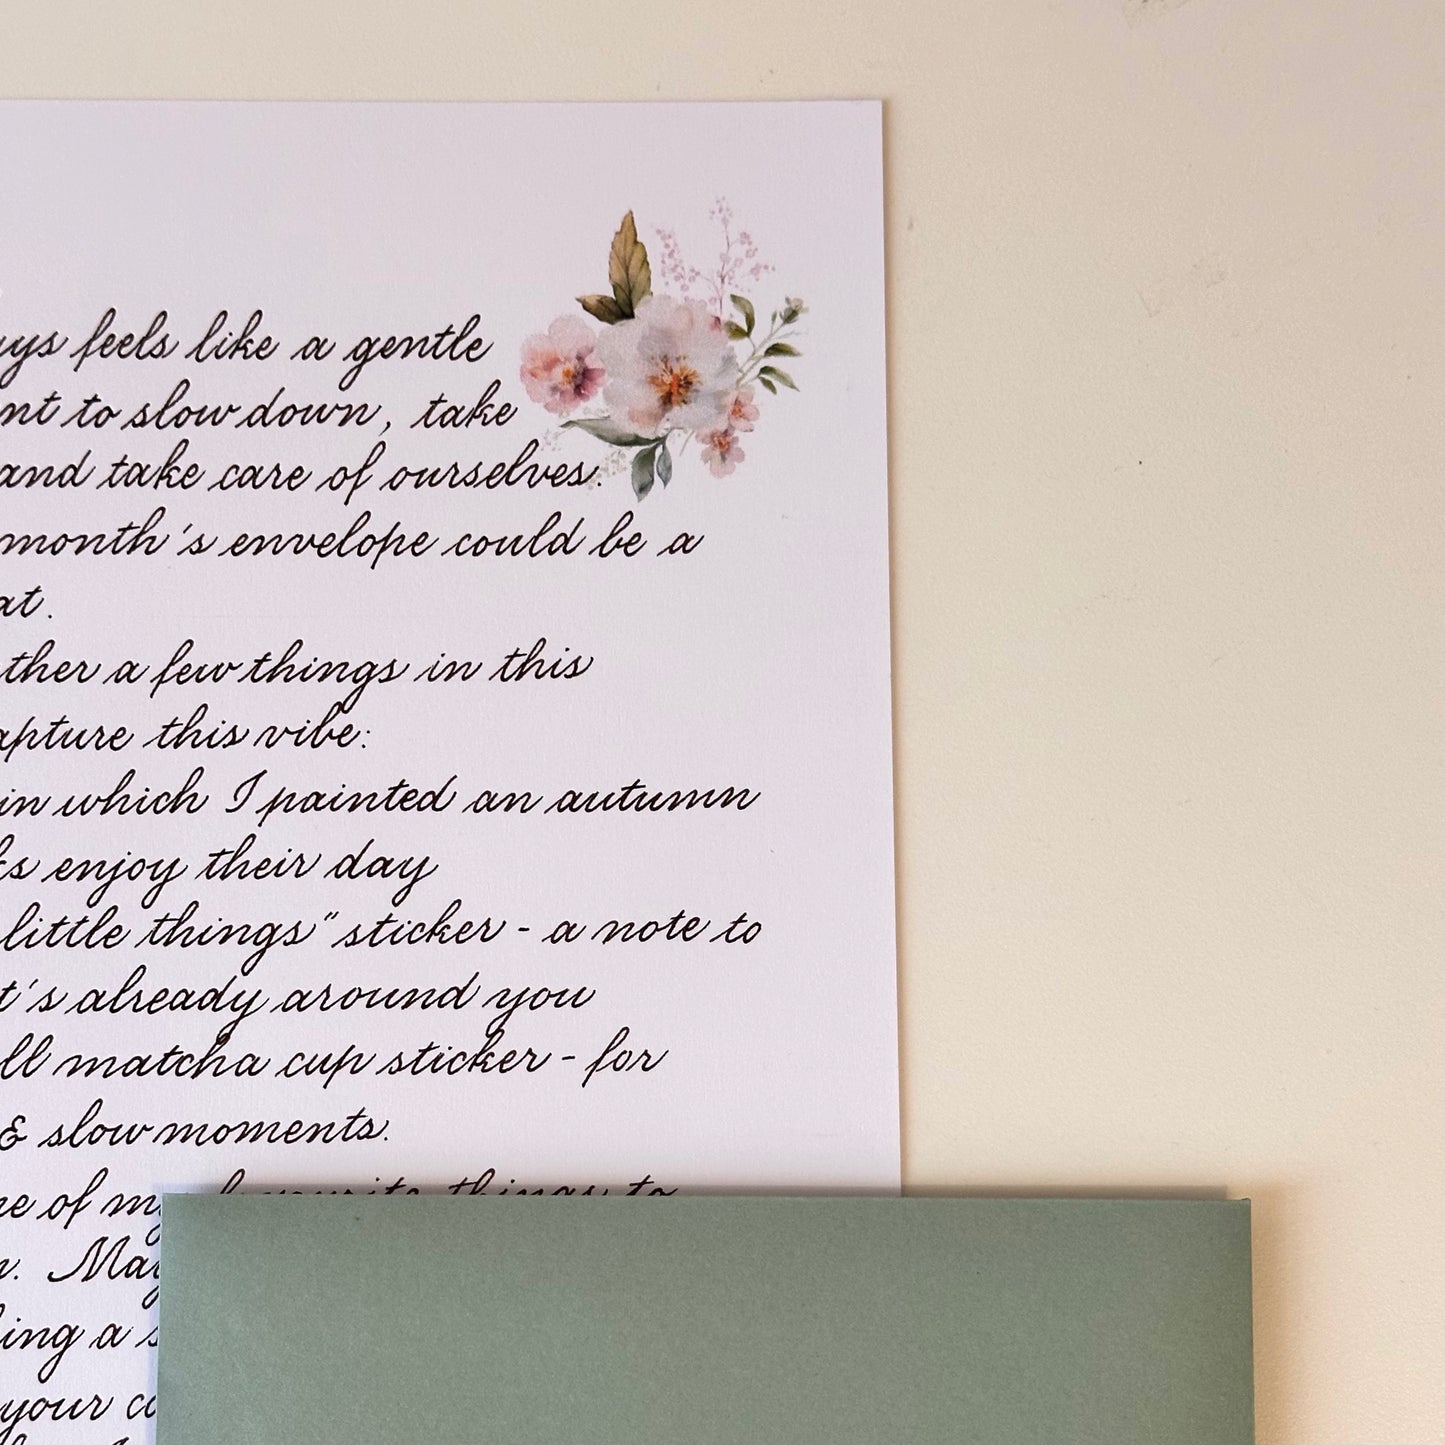 feels like a gentle
to slow down, take
and take care of ourselves.
month's envelope could be a
a few things in this
this vibe:
in which I painted an autumn
enjoy their day
little things" sticker - a note to
already around you
matcha cup sticker - for
& slow moments.
of my favourite things to
a
your